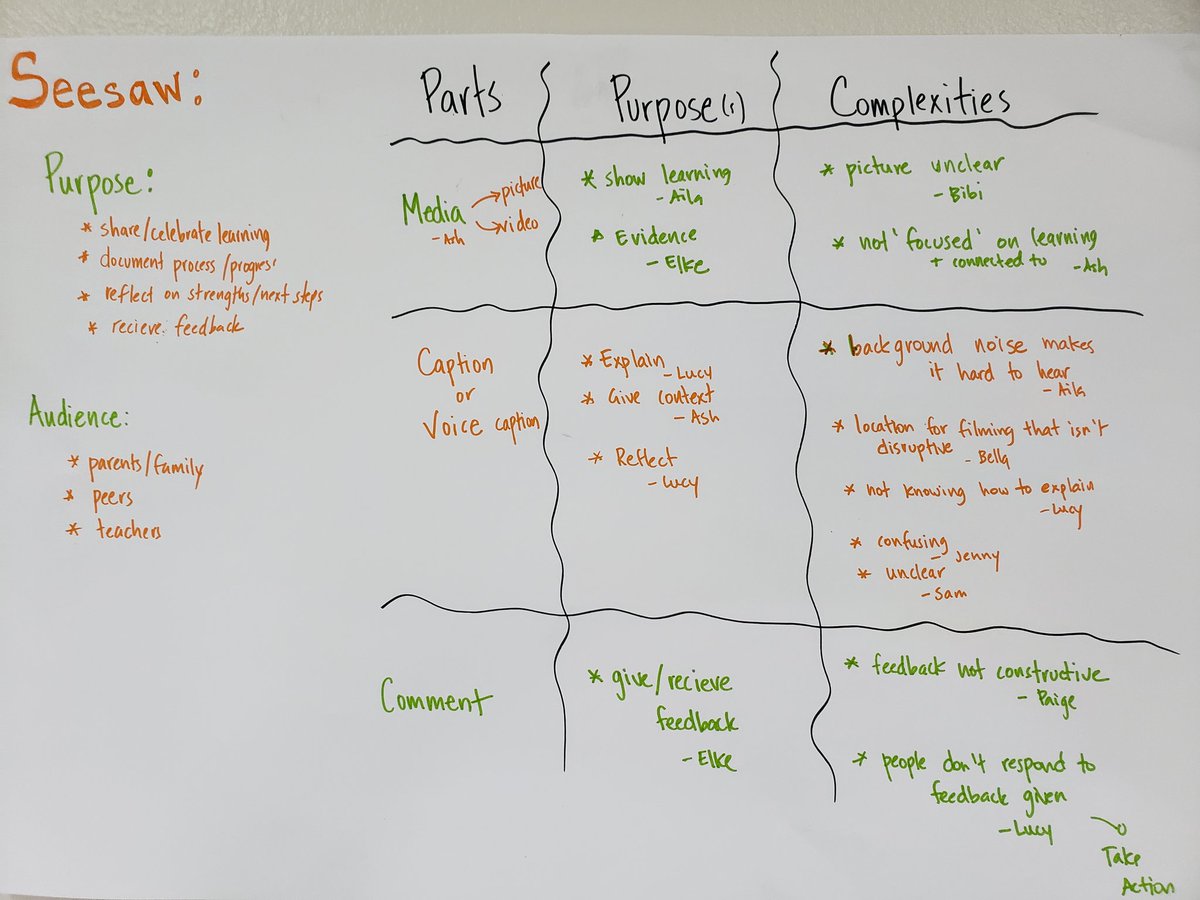 Seesaw:
Purpose:
* share/celebrate learning
* document process/progress
* reflect on strengths/next steps
* recieve feedback
Audience:
* parents/family
* peers
* teachers
Parts
Purpose(s)
Complexities
Media
- Ash
picture
video
* show learning
- Aila
* Evidence
- Elke
* picture unclear
- Bibi
* not 'focused' on learning
+ connected to - Ash
Caption
or
Voice caption
* Explain
- Lucy
* Give context
- Ash
* Reflect
- Lucy
* background noise makes
it hard to hear
- Aila
* location for filming that isn't
disruptive - Bella
* not knowing how to explain
- Lucy
* confusing
- Jenny
* unclear
- Sam
Comment
* give/recieve
feedback
- Elke
* feedback not constructive
- Paige
* people don't respond to
feedback given
- Lucy
Take
Action